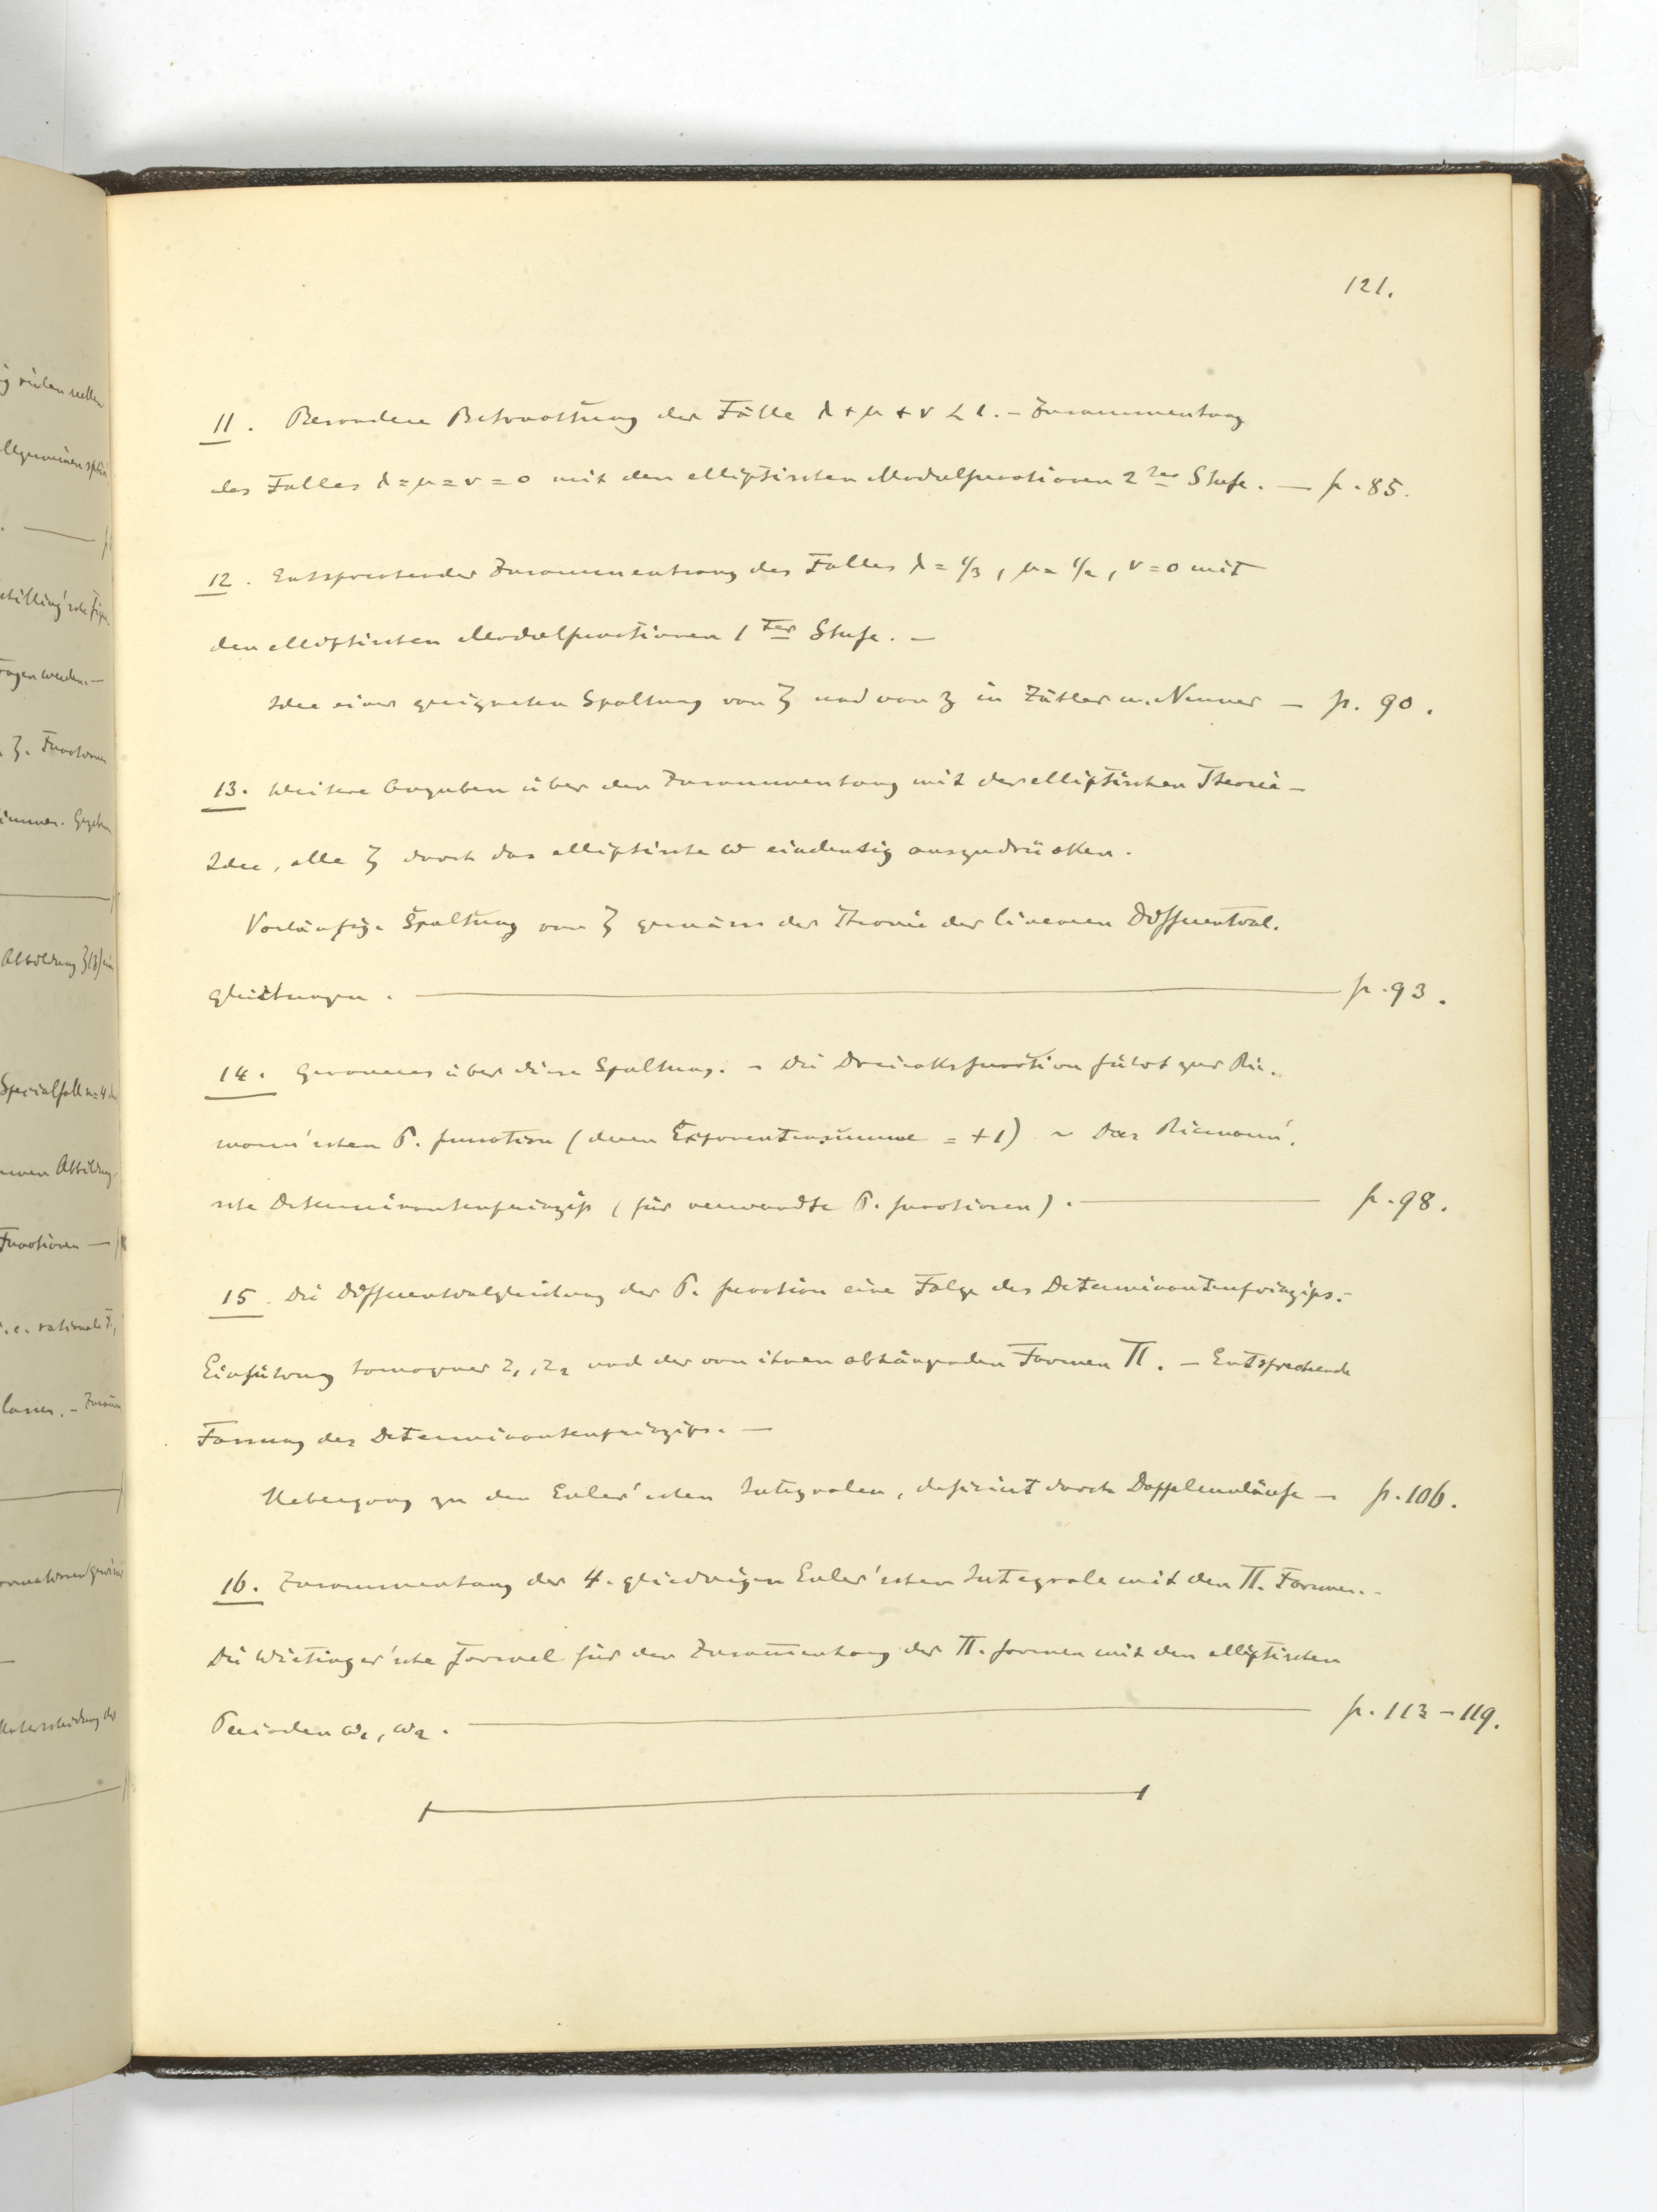 121.
11. Besondere Betrachtung der Fälle λ + μ + ν < 1. – Zusammenhang
des Falles λ = μ = ν = 0 mit den elliptischen Modulfunctionen 2ter Stufe. — p. 85.
12. Entsprechender Zusammenhang des Falles λ = 1/3, μ = 1/2, ν = 0 mit
den elliptischen Modulfunctionen 1ter Stufe. –
Idee einer geeigneten Spaltung von ζ und von z in Zähler u. Nenner – p. 90.
13. Weitere Angaben über den Zusammenhang mit der elliptischen Theorie –
Idee, alle ζ durch das elliptische ω eindeutig auszudrücken.
Vorläufige Spaltung von ζ gemäss der Theorie der linearen Differential-
gleichungen. — p. 93.
14. Genaueres über diese Spaltung. – Die Dreiecksfunction führt zur Rie-
mann'schen P-function (deren Exponentensumme = +1) – Das Riemann'-
sche Determinantenprinzip (für verwandte P-functionen). — p. 98.
15. Die Differentialgleichung der P-function eine Folge des Determinantenprinzips. –
Einführung homogener z1, z2 und der von ihnen abhängenden Formen Π. – Entsprechende
Fassung des Determinantenprinzips. —
Uebergang zu den Euler'schen Integralen, definirt durch Doppelumläufe – p. 106.
16. Zusammenhang der 4-gliedrigen Euler'schen Integrale mit den Π-Formen. –
Die Wirtinger'sche Formel für den Zusammenhang der Π-formen mit den elliptischen
Perioden ω1, ω2. — p. 113 – 119.